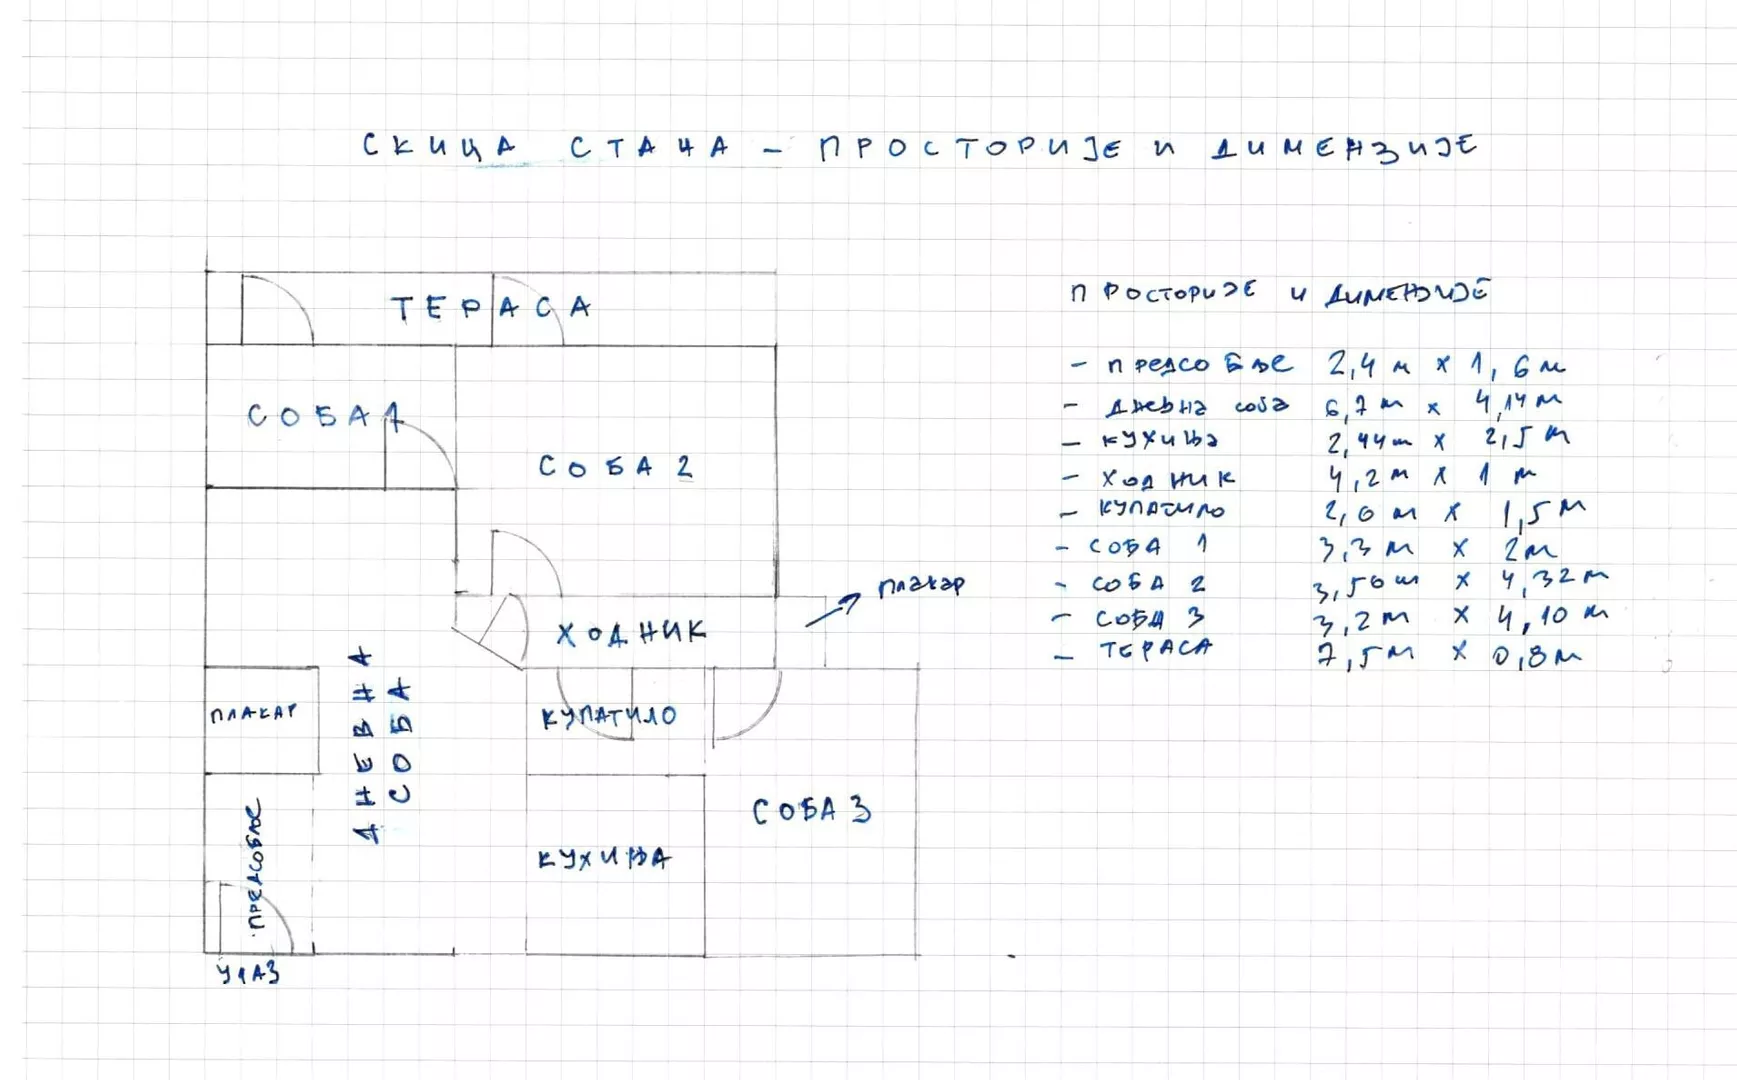 СКИЦА СТАНА - ПРОСТОРИЈЕ И ДИМЕНЗИЈЕ
ТЕРАСА
СОБА 1
СОБА 2
ХОДНИК
плакар
ПЛАКАР
ДНЕВНА
СОБА
КУПАТИЛО
СОБА 3
КУХИЊА
ПРЕДСОБЉЕ
УЛАЗ
ПРОСТОРИЈЕ И ДИМЕНЗИЈЕ
- ПРЕДСОБЉЕ 2,4 м x 1,6 м
- ДНЕВНА СОБА 6,7 м x 4,14 м
- КУХИЊА 2,44 м x 2,5 м
- ХОДНИК 4,2 м x 1 м
- КУПАТИЛО 2,0 м x 1,5 м
- СОБА 1 3,3 м x 2 м
- СОБА 2 3,50 м x 4,32 м
- СОБА 3 3,2 м x 4,10 м
- ТЕРАСА 7,5 м x 0,8 м